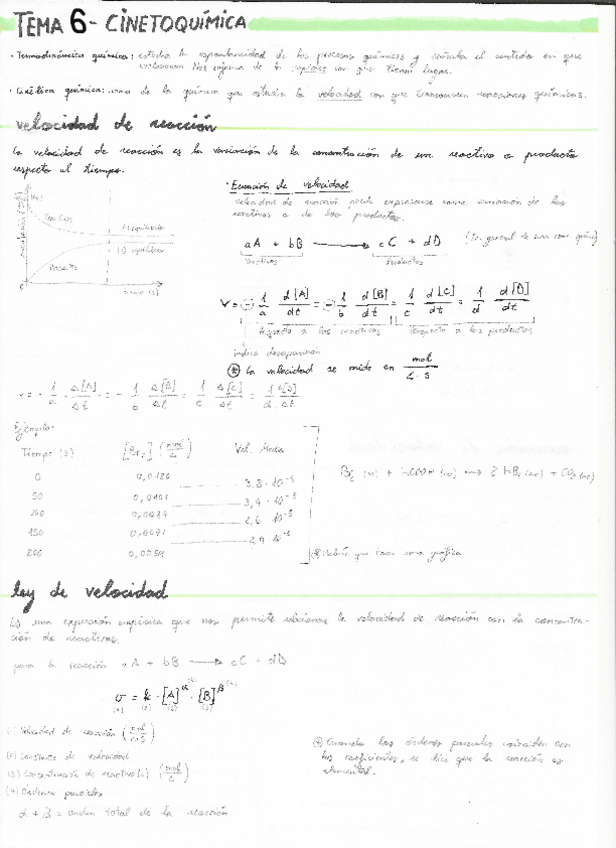 TEMA 6 - CINETOQUÍMICA
· Termodinámica química: estudia la espontaneidad de los procesos químicos y señala el sentido en que
evolucionan. Nos informa de la rapidez con que tienen lugar.
· Cinética química: rama de la química que estudia la velocidad con que transcurren reacciones químicas.
velocidad de reacción
La velocidad de reacción es la variación de la concentración de un reactivo o producto
respecto al tiempo.
· Ecuación de velocidad
velocidad de reacción puede expresarse como de los
reactivos o de los productos.
Reactivos
Productos
tiempo (s)
aA + bB → cC + dD
Reactivos Productos
v = - 1/a d[A]/dt = - 1/b d[B]/dt = 1/c d[C]/dt = 1/d d[D]/dt
Respecto a los reactivos Respecto a los productos
indica desaparición
* La velocidad se mide en mol/L·s
v = - 1/a Δ[A]/Δt = - 1/b Δ[B]/Δt = 1/c Δ[C]/Δt = 1/d Δ[D]/Δt
Ejemplo:
Tiempo (s) [Br₂] (mol/L) Vel. Media
0 0,0120
3,8 · 10⁻⁵
50 0,0101
3,4 · 10⁻⁵
2,6 · 10⁻⁵
150 0,0071
2,4 · 10⁻⁵
una gráfica
ley de velocidad
Es una expresión empírica que nos permite relacionar la velocidad de reacción con la concentra-
ción de reactivos.
para la reacción aA + bB → cC + dD
v = k · [A]^α · [B]^β
(1) (2) (3) (3)
Velocidad de reacción (mol/L·s)
(2) Constante de velocidad
(3) Concentración de reactivo(s) (mol/L)
(4) Órdenes parciales
α + β = orden total de la reacción
* Cuando los órdenes parciales coinciden con
los coeficientes, se dice que la reacción es
elemental.